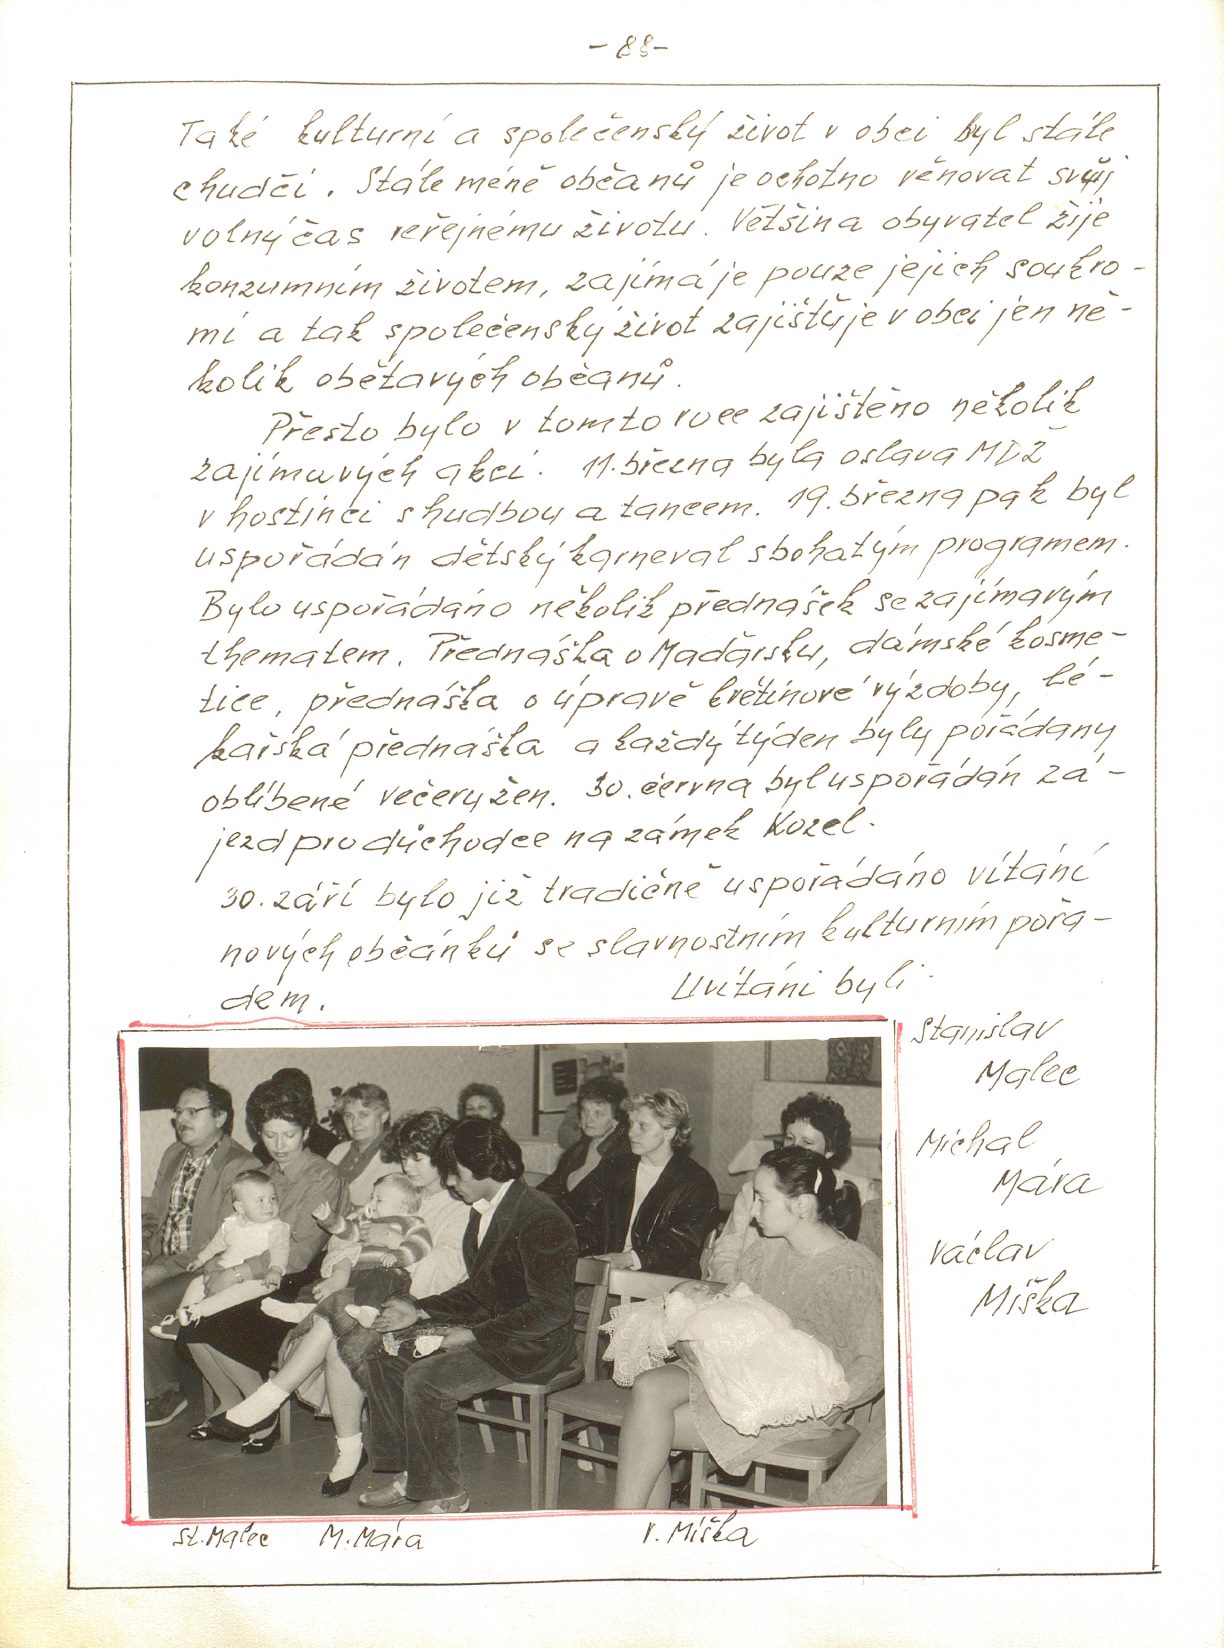 - 88 -
Také kulturní a společenský život v obci byl stále
chudčí. Stále méně občanů je ochotno věnovat svůj
volný čas veřejnému životu. Většina obyvatel žije
konzumním životem, zajímá je pouze jejich soukro-
mí a tak společenský život zajišťuje v obci jen ně-
kolik obětavých občanů.
Přesto bylo v tomto roce zajištěno několik
zajímavých akcí. 11. března byla oslava MDŽ
v hostinci s hudbou a tancem. 19. března pak byl
uspořádán dětský karneval s bohatým programem.
Bylo uspořádáno několik přednášek se zajímavým
thematem. Přednáška o Maďarsku, dámské kosme-
tice, přednáška o úpravě květinové výzdoby, lé-
kařská přednáška a každý týden byly pořádany
oblíbené večery žen. 30. června byl uspořádán zá-
jezd pro důchodce na zámek Kozel.
30. září bylo již tradičně uspořádáno vítání
nových občánků se slavnostním kulturním pořa-
dem. Uvítáni byli
Stanislav
Malec
Michal
Mára
Václav
Míška
St. Malec M. Mára V. Míška